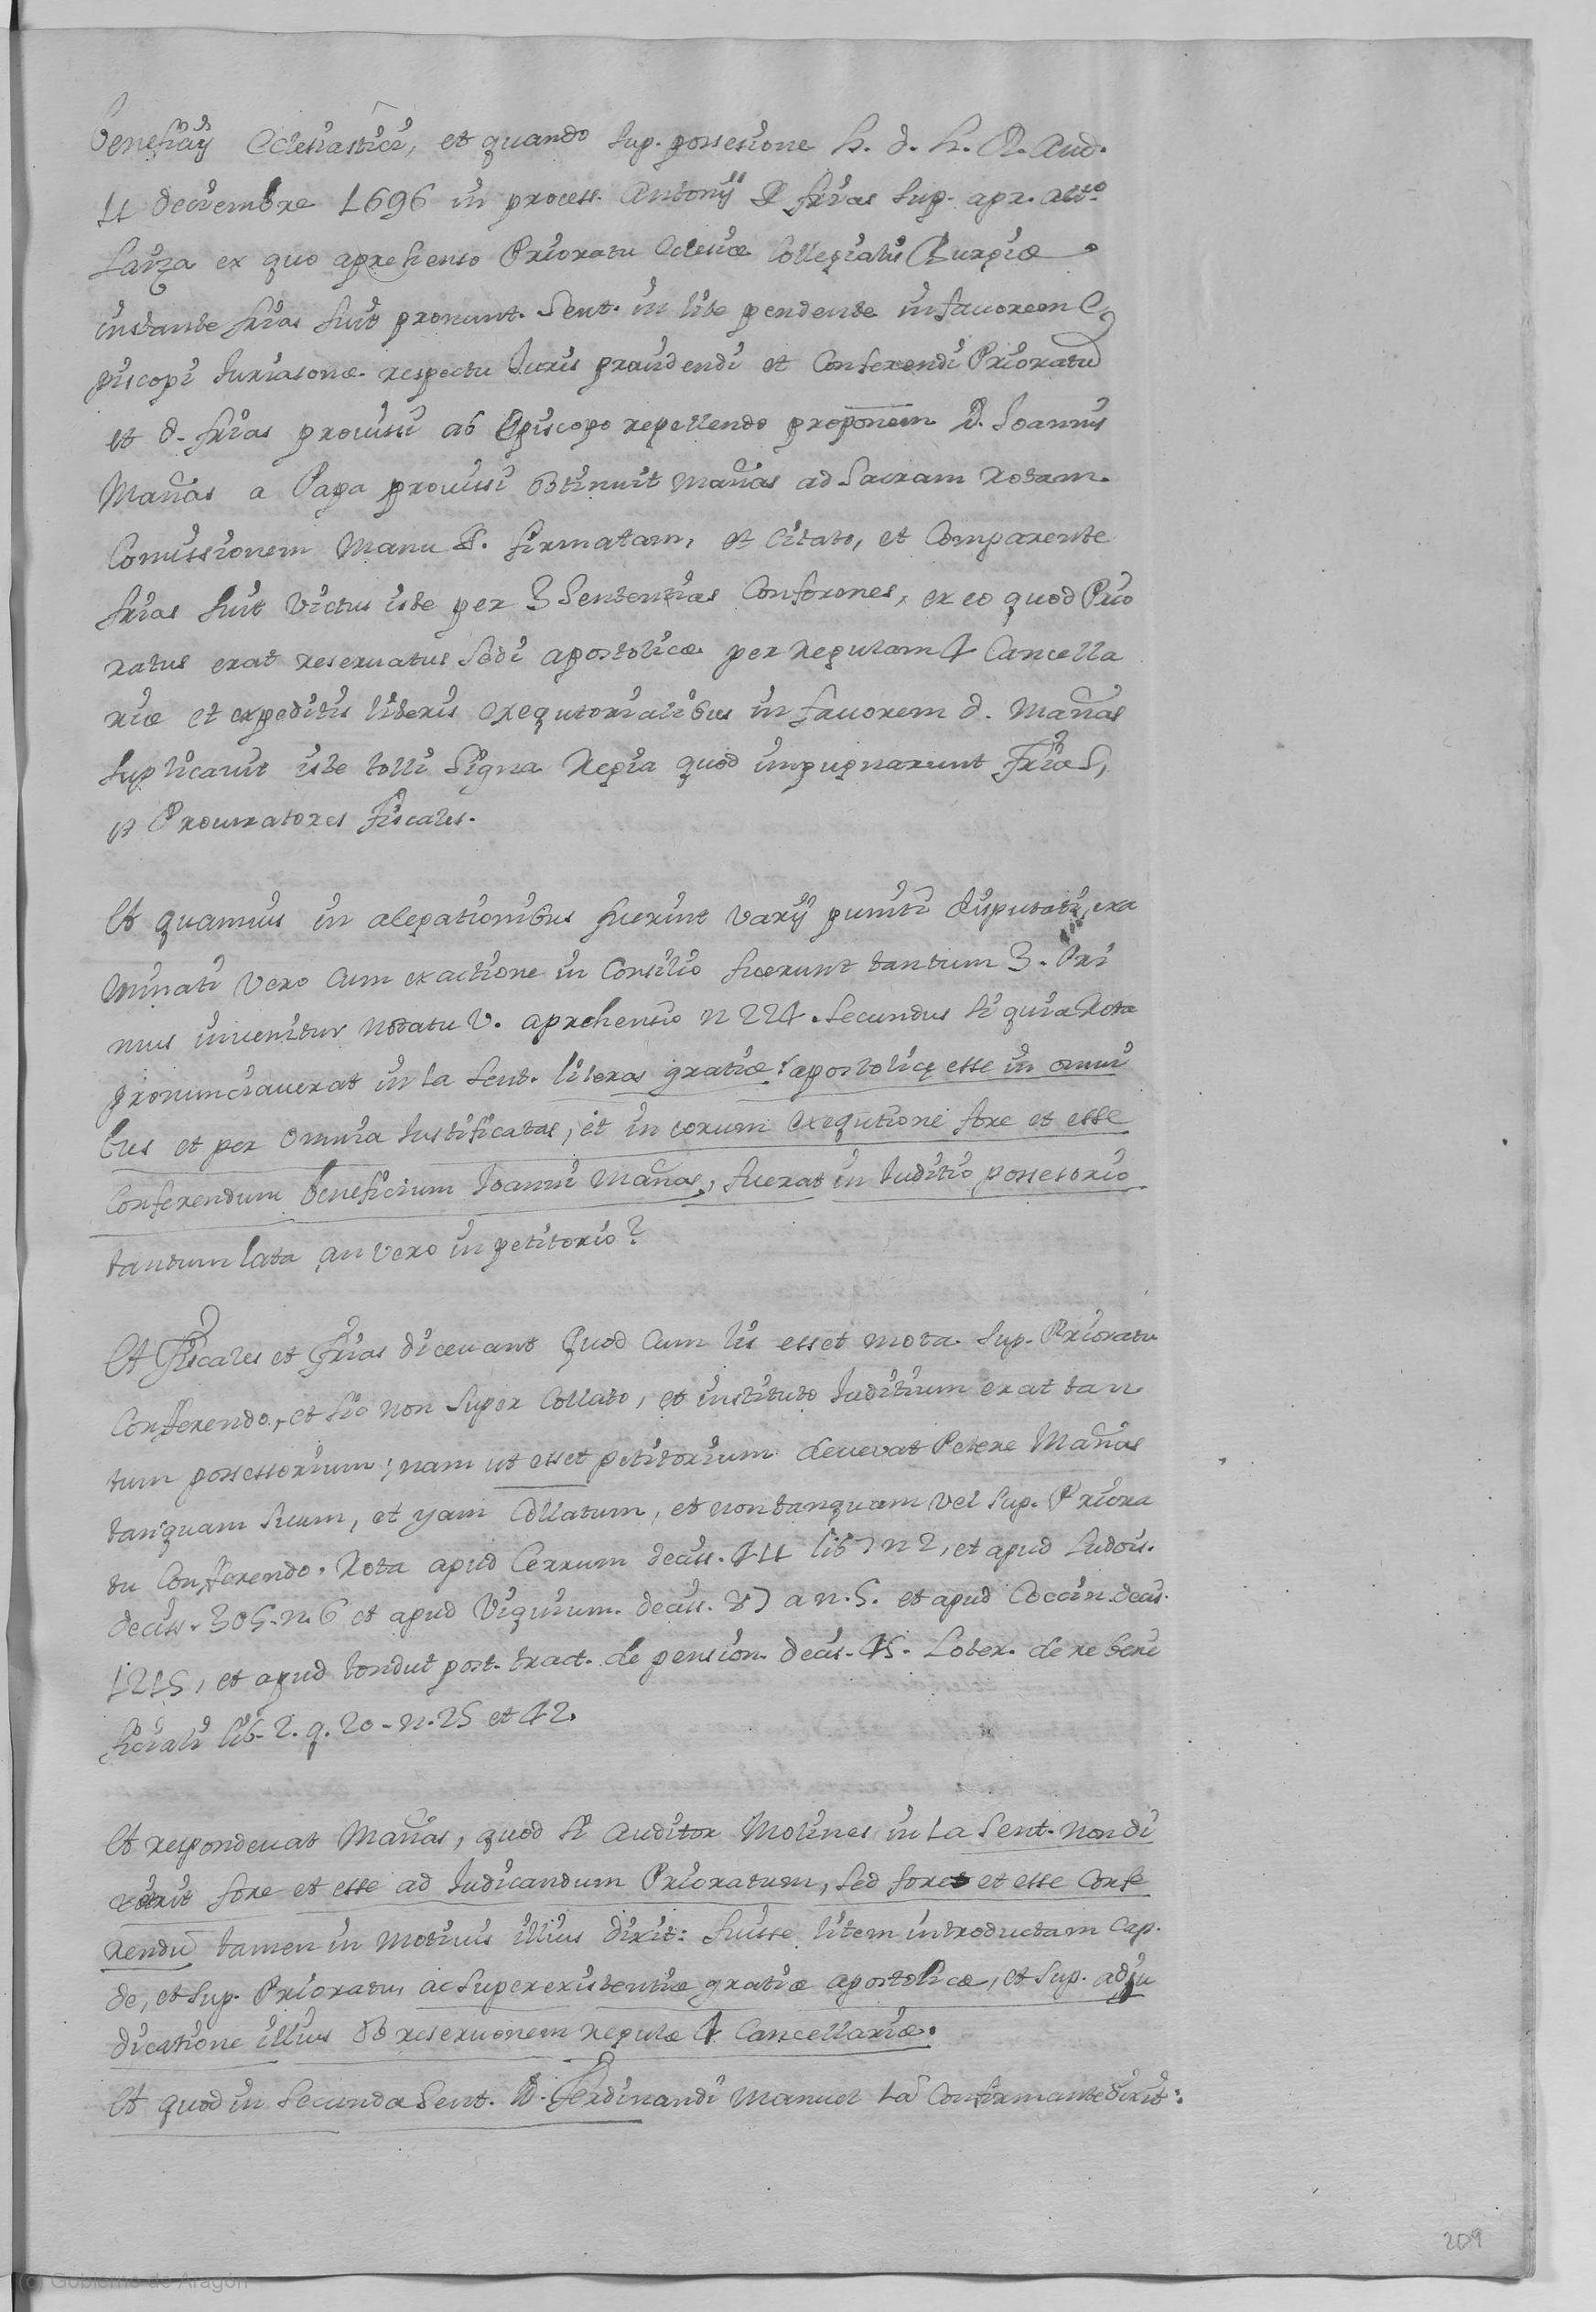 beneficiij Eclesiastici, et quando sup. possesione h. d. h. R. Aud.
11 decienbre 1696 in process. Antonij D frias sup. apr. act.º
Lariza ex quo aprehenso Prioratu Eclesiæ Collegialis Burgiæ
instante frias fuit pronunt. Sent. in lite pendente in fauorem E
piscopi turiasonæ respectu Iuris prouidendi et Conferendi Prioratu
et d. frias prouisi ab Episcopo repellendo proponem D. Joannis
Mañas a Papa prouisi obtinuit Mañas ad Sacram Rotam
Comissionem Manu S. firmatam, et Citato, et Comparente
frias fuit Victus iste per 3 Sententias Conformes, ex eo quod Prio
ratus erat reseruatus Sedi apostolicæ per regulam 4 Cancella
riæ et expeditis literis exequtorialibus in fauorem d. Mañas
suplicauit iste tolli Signa Regia quod impugnarunt Frias,
et Procuratores Fiscales.
Et quamuis in alegationibus fuerint varij puncti disputati, exa
minati vero Cum exactione in Consilio fuerunt tantum 3. Pri
mus inuenitur notatu V. aprehensio n 224. Secundus Si quia Rota
pronunciauerat in 1a Sent. literas gratiæ apostolicę esse in omni
bus et per omnia Iustificatas, et in eorum exequtione fore et esse
Conferendum beneficium Joanni Mañas, fuerat in Iuditio possesorio
tantum lata an vero in petitorio?
Et Fiscales et Frias diceuant quod Cum lis esset mota sup. Prioratu
Conferendo, et sic non super Collato, et instituto Iuditium erat tan
tum possessorium; nam ut esset petitorium deuevat Petere Mañas
tanquam suum, et yam Collatum, et non tanquam vel sup. Priora
tu Conferendo. Rota apud Cerrum deciss. 411 lib 7 n 2, et apud Ludois.
deciss. 305. n. 6 et apud Viquium. deciss. 87 a n. 5. et apud Coccin. decis.
1215, et apud tondut post. tract. de pension. decis. 45. Loter. de re bene
ficiali lib. 2. q. 20. n. 25 et 42.
Et respondeuat Mañas, quod si Auditor Molines in 1a Sent. non di
xerit fore et esse ad Iudicandum Prioratum, sed fore et esse Confe
rendũ tamen in Motiuis illius dixit: fuisse litem introductam Cap.
de, et sup. Prioratu, ac super existentiæ gratiæ apostolicæ, et sup. adju
dicatione illius ob reseruonem regulæ 4 Cancellariæ.
Et quod in Secunda Sent. D. Ferdinandi Manuel 1ª Confirmante dixit:
209
© Gobierno de Aragón